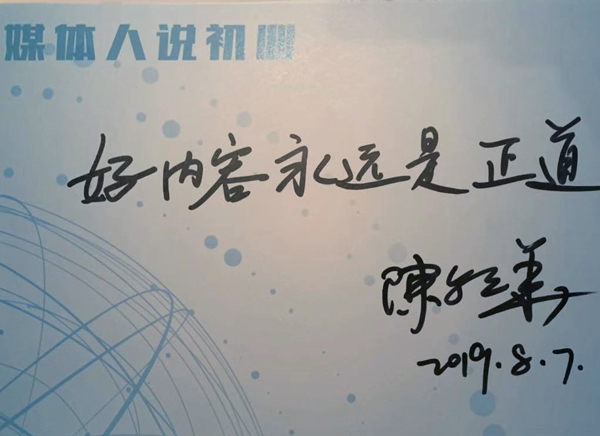 媒体人说初心
好内容永远是正道
陳
2019.8.7.